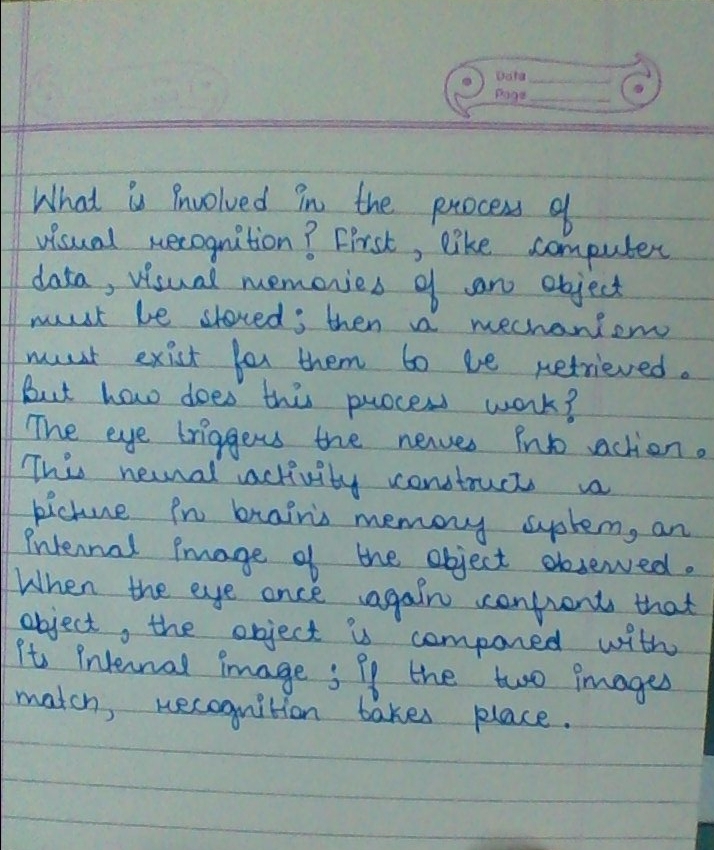 Date
Page
What is involved in the process of
visual recognition? First, like computer
data, visual memories of an object
must be stored; then a mechanism
must exist for them to be retrieved.
But how does this process work?
The eye triggers the nerves into action.
This neural activity constructs a
picture in brain's memory system, an
internal image of the object observed.
When the eye once again confronts that
object, the object is compared with
its internal image; if the two images
match, recognition takes place.